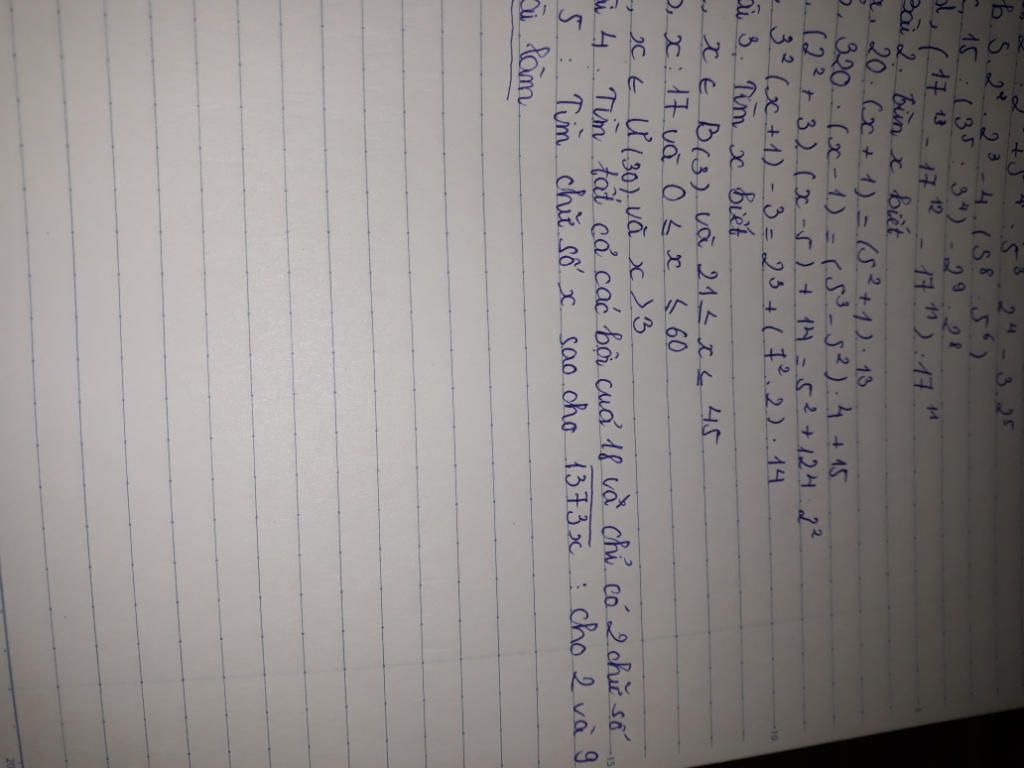 : 2 + 5⁴ . 5³ 2⁴ - 3 . 25
b 5 . 2² . 2³ - 4 . (5⁸ : 5⁶)
15 : (3⁵ : 3⁴) - 2⁹ : 2⁸
d, (17¹³ - 17¹² - 17¹¹) : 17¹¹
Bài 2. Tìm x biết
20 . (x + 1) = (5² + 1) . 13
, 320 . (x - 1) = (5³ - 5²) . 4 + 15
, (2² + 3) (x - 5) + 14 = 5² + 124 . 2²
, 3² (x + 1) - 3 = 2³ + (7² . 2) . 14
ài 3. Tìm x biết
, x ∈ B(3) và 21 ≤ x ≤ 45
, x : 17 và 0 ≤ x ≤ 60
, x ∈ Ư(30) và x > 3
ài 4 : Tìm tất cả các bội của 18 và chỉ có 2 chữ số
5 : Tìm chữ số x sao cho 1373x : cho 2 và 9
ài làm